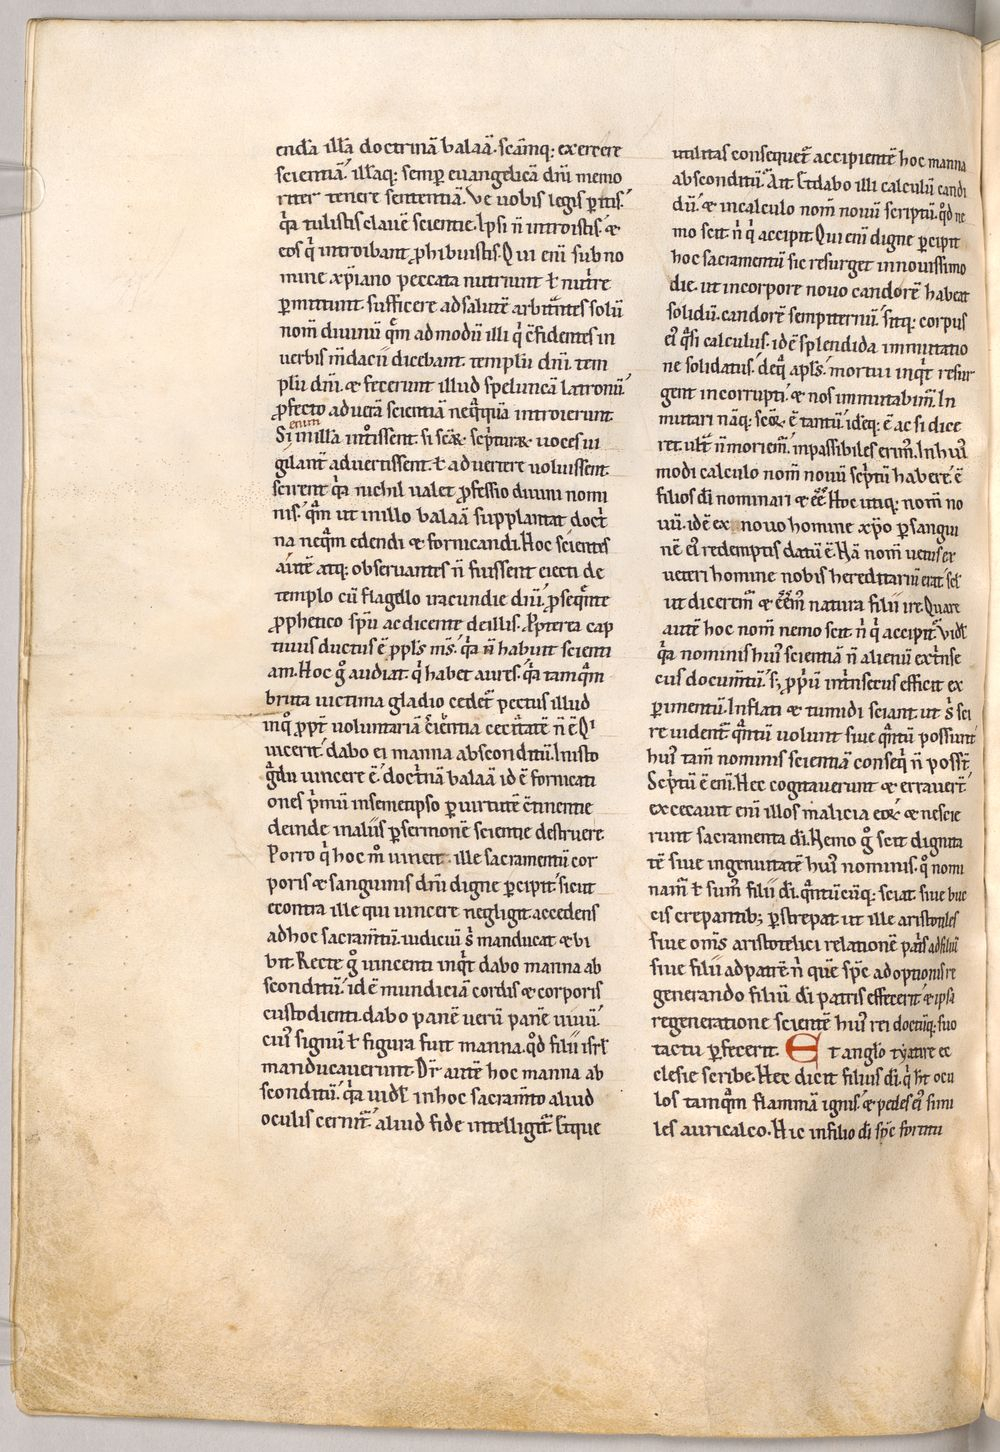 enda illā doctrinā balaā. scāmq; exercere
scientiā. illāq; semp euangelicā dn̄i memo
riter tenere sententiā. Ve uobis legis p̱itis.
q̄a tulistis clauē scientie. Ipsi n̄ introistis. &
eos q̇ introibant p̱hibuistis. Qui eni sub no
mine xp̄iano peccata nutriunt ł nut̓re
p̱mittunt. sufficere ad salutē arbit̓ntes solū
nom̄ diuinū q̄m admodū illi q̇ c̄fidentes in
uerbis m̄dacii dicebant. templū dn̄i. tem
plū dn̄i. & fecerunt illud speluncā latronū.
p̱fecto ad uerā scientiā neq̄quā introierunt.
Si enim in illā int̓issent. si scāꝝ sc̓pturaꝝ uoces ui
gilant̓ aduertissent. ł aduertere uoluissent.
scirent q̄a nichil ualet p̱fessio diuini nomi
nis. q̄m ut in illo balaā supplantat doct̓
na neq̄m edendi & fornicandi. Hoc scientes
autē atq; obseruantes n̄ fuissent eiecti de
templo cū flagello iracundie dn̄i. p̱seq̄nte
p̱phetico sp̄u ac dicente de illis. Ṗpterea cap
tiuus ductus ē pp̄ls m̄s. q̄a n̄ habuit scienti
am. Hoc g̊ audiat. q̇ habet aures. q̄a tamq̄m
bruta uictima gladio cedet̄ pectus illud
inq̊ pp̱t̄ uoluntariā c̄ientia ceci̓tatē n̄ ē. Qi
uicerit. dabo ei manna absconditū. In isto
g̓du uincere ē. doct̓nā balaā id ē fornicati
ones p̓mū in semetipso p̱ uirtutē c̄tinentie
deinde in aliis p̱ sermonē scientie destruere.
Porro q̇ hoc m̊ uincit. ille sacramentū cor
poris & sanguinis dn̄i digne p̱cipit. sicut
econtra ille qui uincere negligit. accedens
ad hoc sacram̄tū. iudiciū s̓ manducat & bi
bit. Recte g̊ uincenti inq̓t dabo manna ab
sconditū. id ē mundiciā cordis & corporis
custodienti. dabo panē uerū panē uiuū.
cui᾿ signū ł figura fuit manna. q̊d filii isrl̄
manducauerunt. Dr̄ autē hoc manna ab
sconditū. q̄a uidl̄ in hoc sacram̄to aliud
oculis cernit̄. aliud fide intelligit̄. Etque
utilitas consequet̄ accipientē hoc manna
absconditū. Ait. Et dabo illi calculū candi
dū. & in calculo nom̄ nouū scriptū. q̊d ne
mo scit. n̓ q̇ accipit. Qui eni digne p̱cipit
hoc sacramentū sic resurget in nouissimo
die. ut in corpore nouo candorē habeat
solidū. candorē sempiternū. sitq; corpus
ei᾿ q̓si calculus. id ē splendida immutatio
ne solidatus. de q̄ apls̄. mortui inq̓t resur
gent incorrupti. & nos immutabim̄. In
mutari nāq; scōꝝ ē tantū. ideq; ē ac si dice
ret. ult̓ n̄ moriem̄. inpassibiles erim᾿. In hui᾿
modi calculo nom̄ nouū sc̓ptū habere. ē
filios dī nominari & eē. Hoc utiq; nom̄ no
uū. id ē ex nouo homine xp̄o p̱ sangui
nē ei᾿ redemptis datū ē. Nā nom̄ uetus ex
ueteri homine nobis hereditariū erat. scl̄
ut dicerem̄ & eēm᾿ natura filii ire. Quare
autē hoc nom̄ nemo scit. n̓ q̇ accipit. Vidl̄
q̄a nominis hui᾿ scientiā n̄ alienū ext̓nse
cus docum̄tū. s; p̱p̓ū int̓nsecus efficit ex
p̱imentū. Inflati & tumidi sciant ut s̓ sci
re uident̄ q̄ntū uolunt siue q̄ntū possunt
hui᾿ tam̄ nominis scientiā conseq̇ n̄ poss̄t.
Sc̓ptū ē eni. Hec cogitauerunt & errauer̄t.
excecauit eni illos malicia eoꝝ & nescie
runt sacramenta dī. Nemo g̊ scit dignita
tē siue ingenuitatē hui᾿ nominis. q̊ nomi
nam̄ ł sum᾿ filii dī. q̄ntūcūq; sciat. siue buc
cis crepantib; p̱strepat ut ille aristotiles
siue om̄s aristotelici relationē patris ad filiū
siue filii ad patrē. n̓ quē sp̄c adoptionis re
generando filiū dī patris effecerit. & ipsā
regeneratione scientē hui᾿ rei doctūq; suo
tactu p̱fecerit. Et anglo tyatire ec
clesie scribe. Hec dicit filius dī. q̇ ht̄ ocu
los tamq̄m flammā ignis. & pedes ei᾿ simi
les auricalco. Hic in filio dī sp̄c fortitu